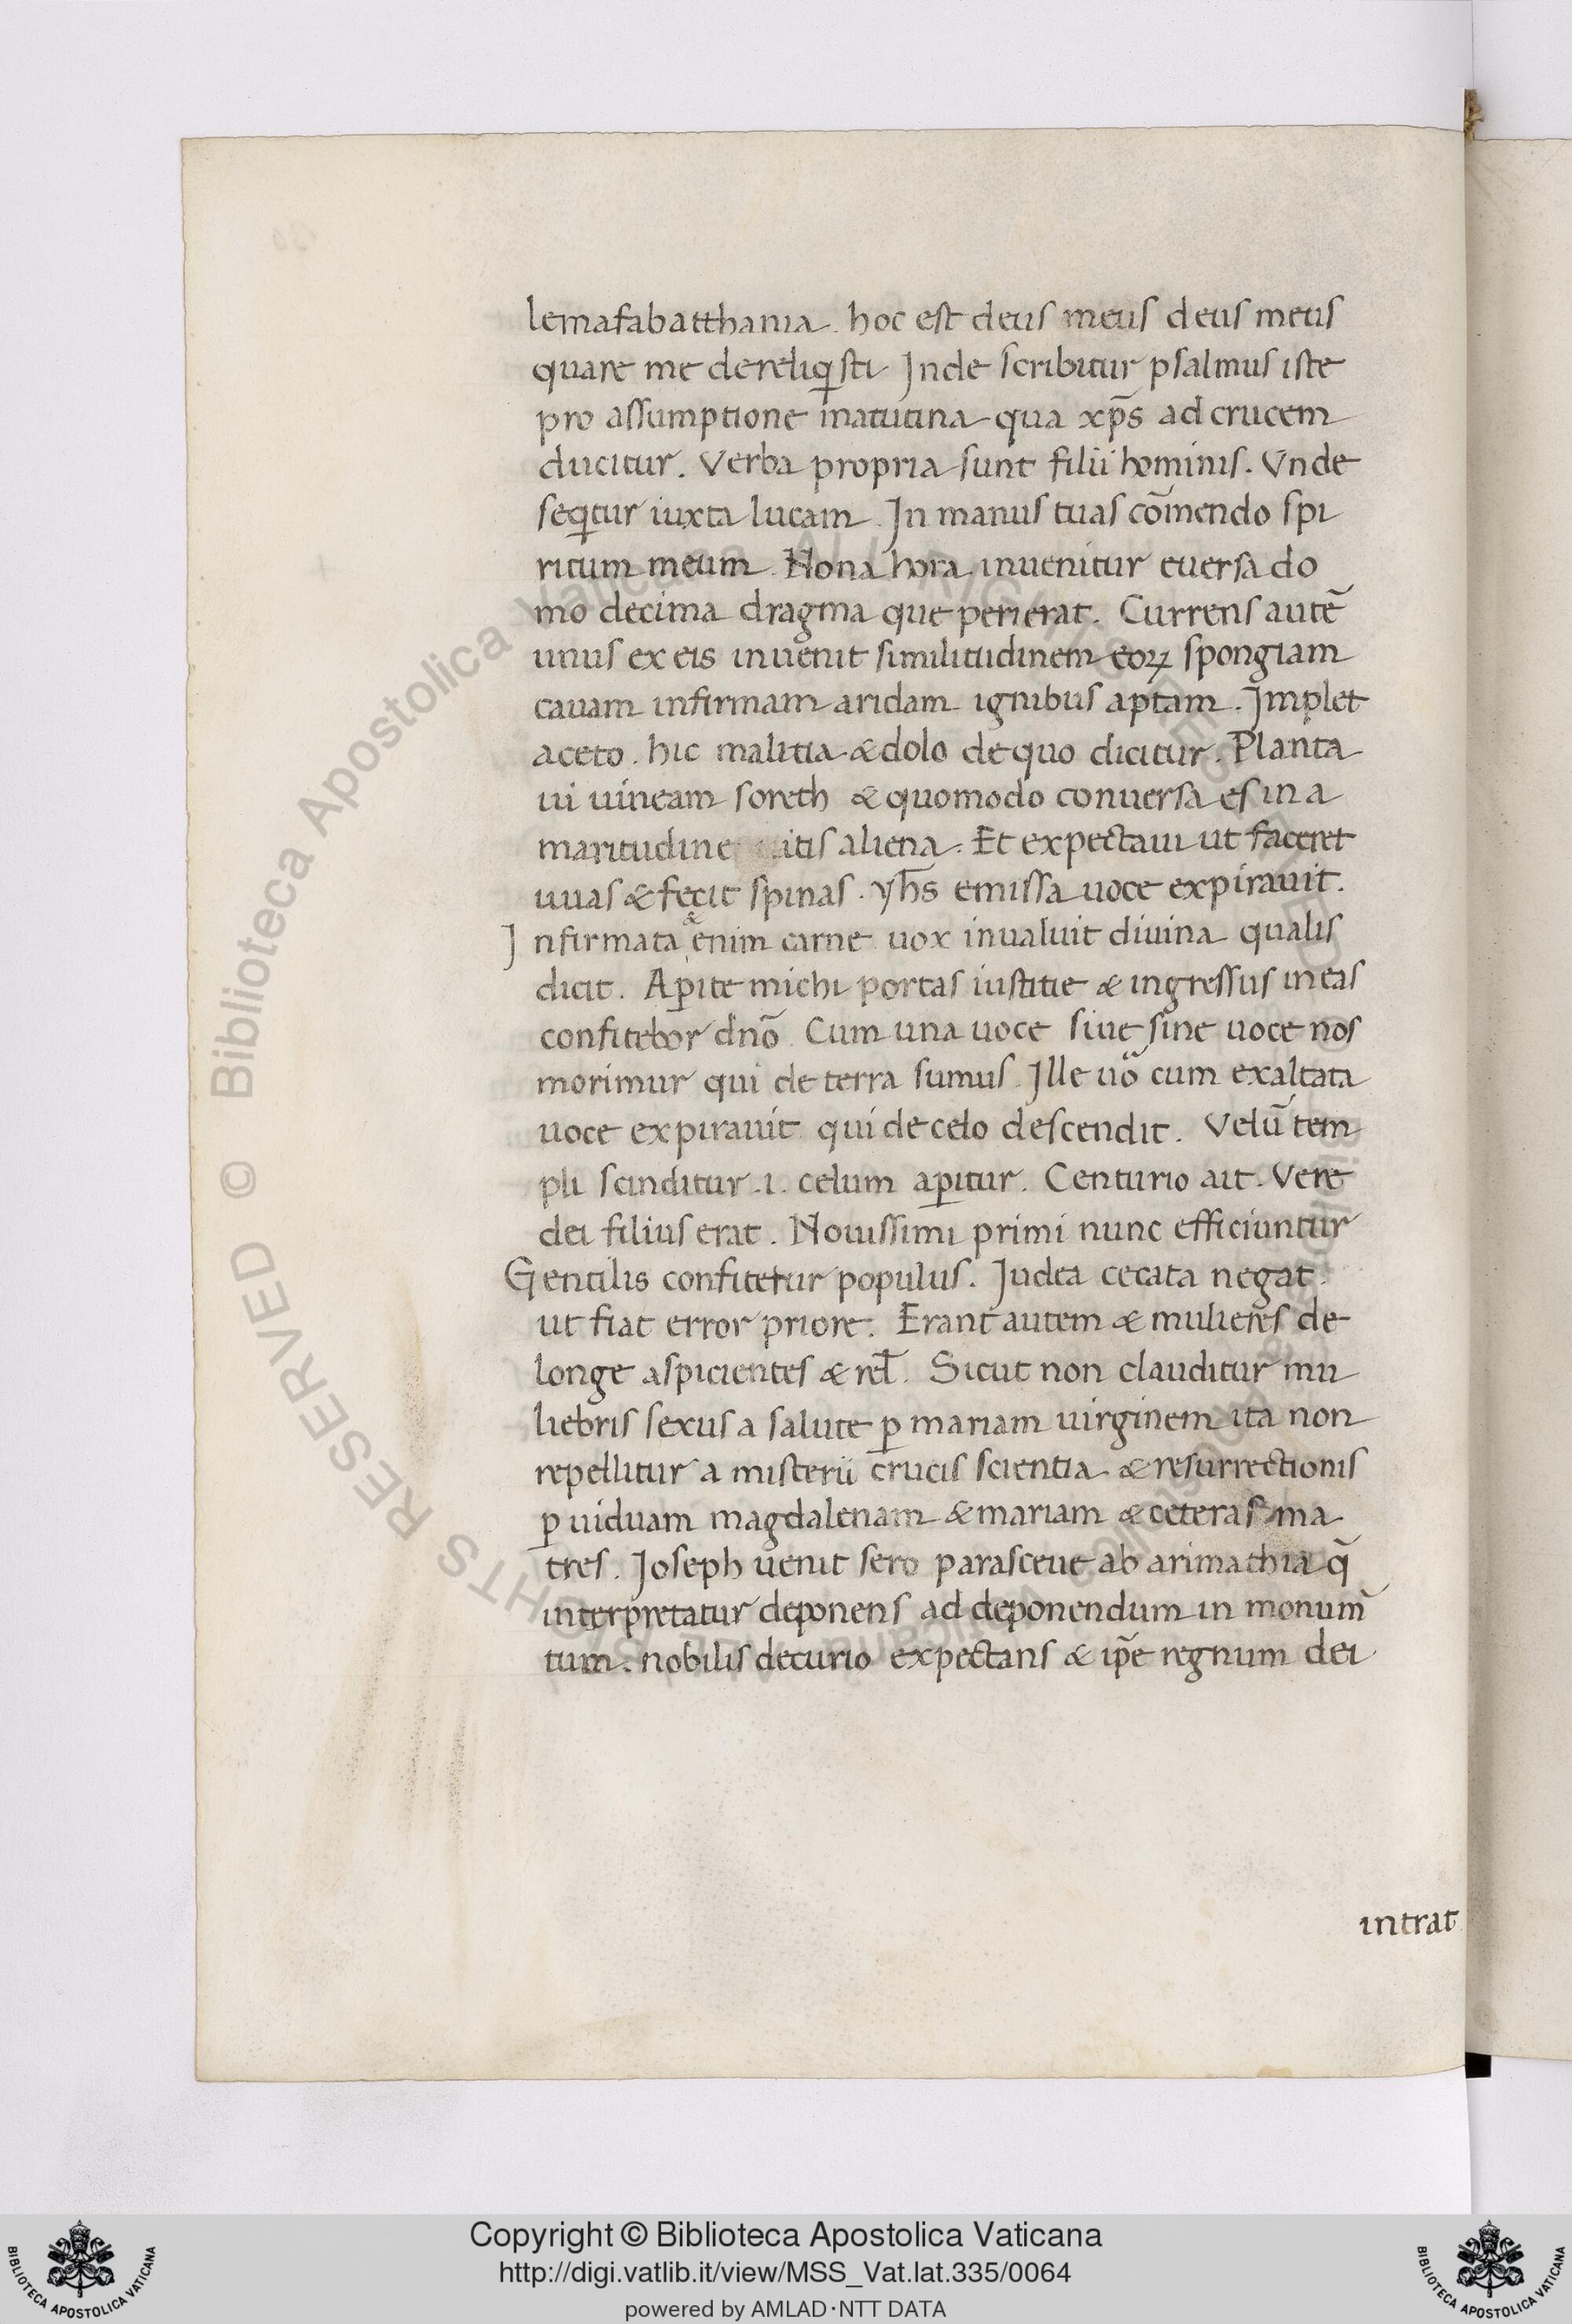 lemafabatthania. hoc est deus meus deus meus
quare me dereliq̱sti Inde scribitur psalmus iste
pro assumptione matutina qua xp̄s ad crucem
ducitur. Verba propria sunt filii hominis. Vnde
seq̱tur iuxta lucam. In manus tuas cōmendo spi
ritum meum. Nona hora inuenitur euersa do
mo decima dragma que perierat. Currens autē
unus ex eis inuenit similitudinem eoꝝ spongiam
cauam infirmam aridam ignibus aptam. Implet
aceto. hic malitia & dolo de quo dicitur. Planta
ui uineam soreth & quomodo conuersa es in a
maritudine uitis aliena. Et expectaui ut faceret
uuas & fecit spinas. yħs emissa uoce expirauit.
Infirmata & enim carne uox inualuit diuina qualis
dicit. Aꝑite michi portas iustitie & ingressus in eas
confitebor dnō. Cum una uoce siue sine uoce nos
morimur qui de terra sumus. Ille uō cum exaltata
uoce expirauit qui de celo descendit. Velū tem
pli scinditur .i. celum aꝑitur. Centurio ait. Vere
dei filius erat. Nouissimi primi nunc efficiuntur
Gentilis confitetur populus. Iudea cecata negat.
ut fiat error priore. Erant autem & mulieres de
longe aspicientes & rel̄. Sicut non clauditur mu
liebris sexus a salute ꝑ mariam uirginem ita non
repellitur a misterii crucis scientia & resurrectionis
ꝑ uiduam magdalenam & mariam & ceteras ma
tres. Joseph uenit sero parasceue ab arimathia q̄
interpretatur deponens ad deponendum in monum̄
tum. nobilis decurio expectans & ip̄e regnum dei
intrat
© Biblioteca Apostolica Vaticana ALL RIGHTS RESERVED
Copyright © Biblioteca Apostolica Vaticana
http://digi.vatlib.it/view/MSS_Vat.lat.335/0064
powered by AMLAD·NTT DATA
BIBLIOTECA APOSTOLICA VATICANA
BIBLIOTECA APOSTOLICA VATICANA